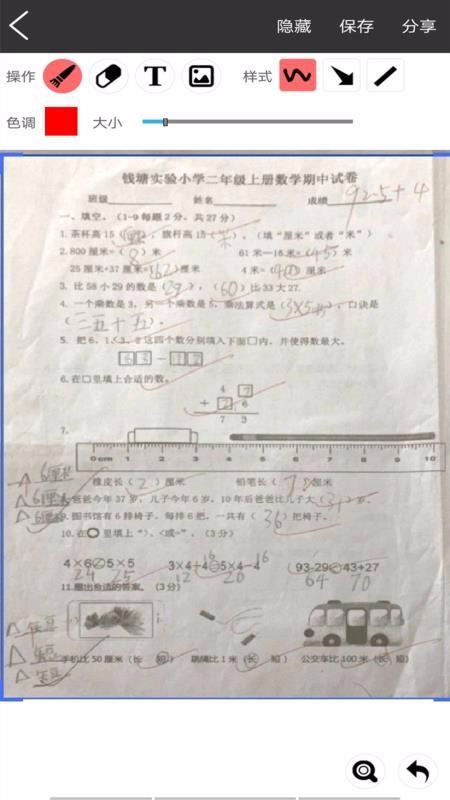 隐藏 保存 分享
操作 T 样式
色调 大小
钱塘实验小学二年级上册数学期中试卷
班级 姓名 成绩 92.5+4
一、填空。（1-9每题2分，共27分）
1.茶杯高15（厘米），旗杆高15（米）。（填“厘米”或者“米”）
2.800厘米=（8）米 61米-16米=（45）米
25厘米+37厘米=（62）厘米 4米=（400）厘米
3. 比58小29的数是（29），（60）比33大27.
4. 一个乘数是3，另一个乘数是5，乘法算式是（3×5），口诀是
（三五十五）.
5. 把6、1、3、2这四个数分别填入下面□内，并使得数最大。
6.在□里填上合适的数。
4 7
+ 2 6
7 3
7.
0cm 1 2 3 4 5 6 7 8 9 10
6厘米 橡皮长（2）厘米 铅笔长（）厘米
6厘米 爸爸今年37岁，儿子今年6岁，10年后爸爸比儿子大（31）岁。
6厘米 9.图书馆有6排椅子，每排6把，一共有（36）把椅子。
10.在○里填上“>、<或=”，（3分）
4×6 5×5 3×4+4 5×4-4 93-29 43+27
24 25 12 16 20 16 64 70
11.圈出合适的答案。（3分）
手机比50厘米（长 短） 跳绳比1米（长 短） 公交车比100米（长 短）